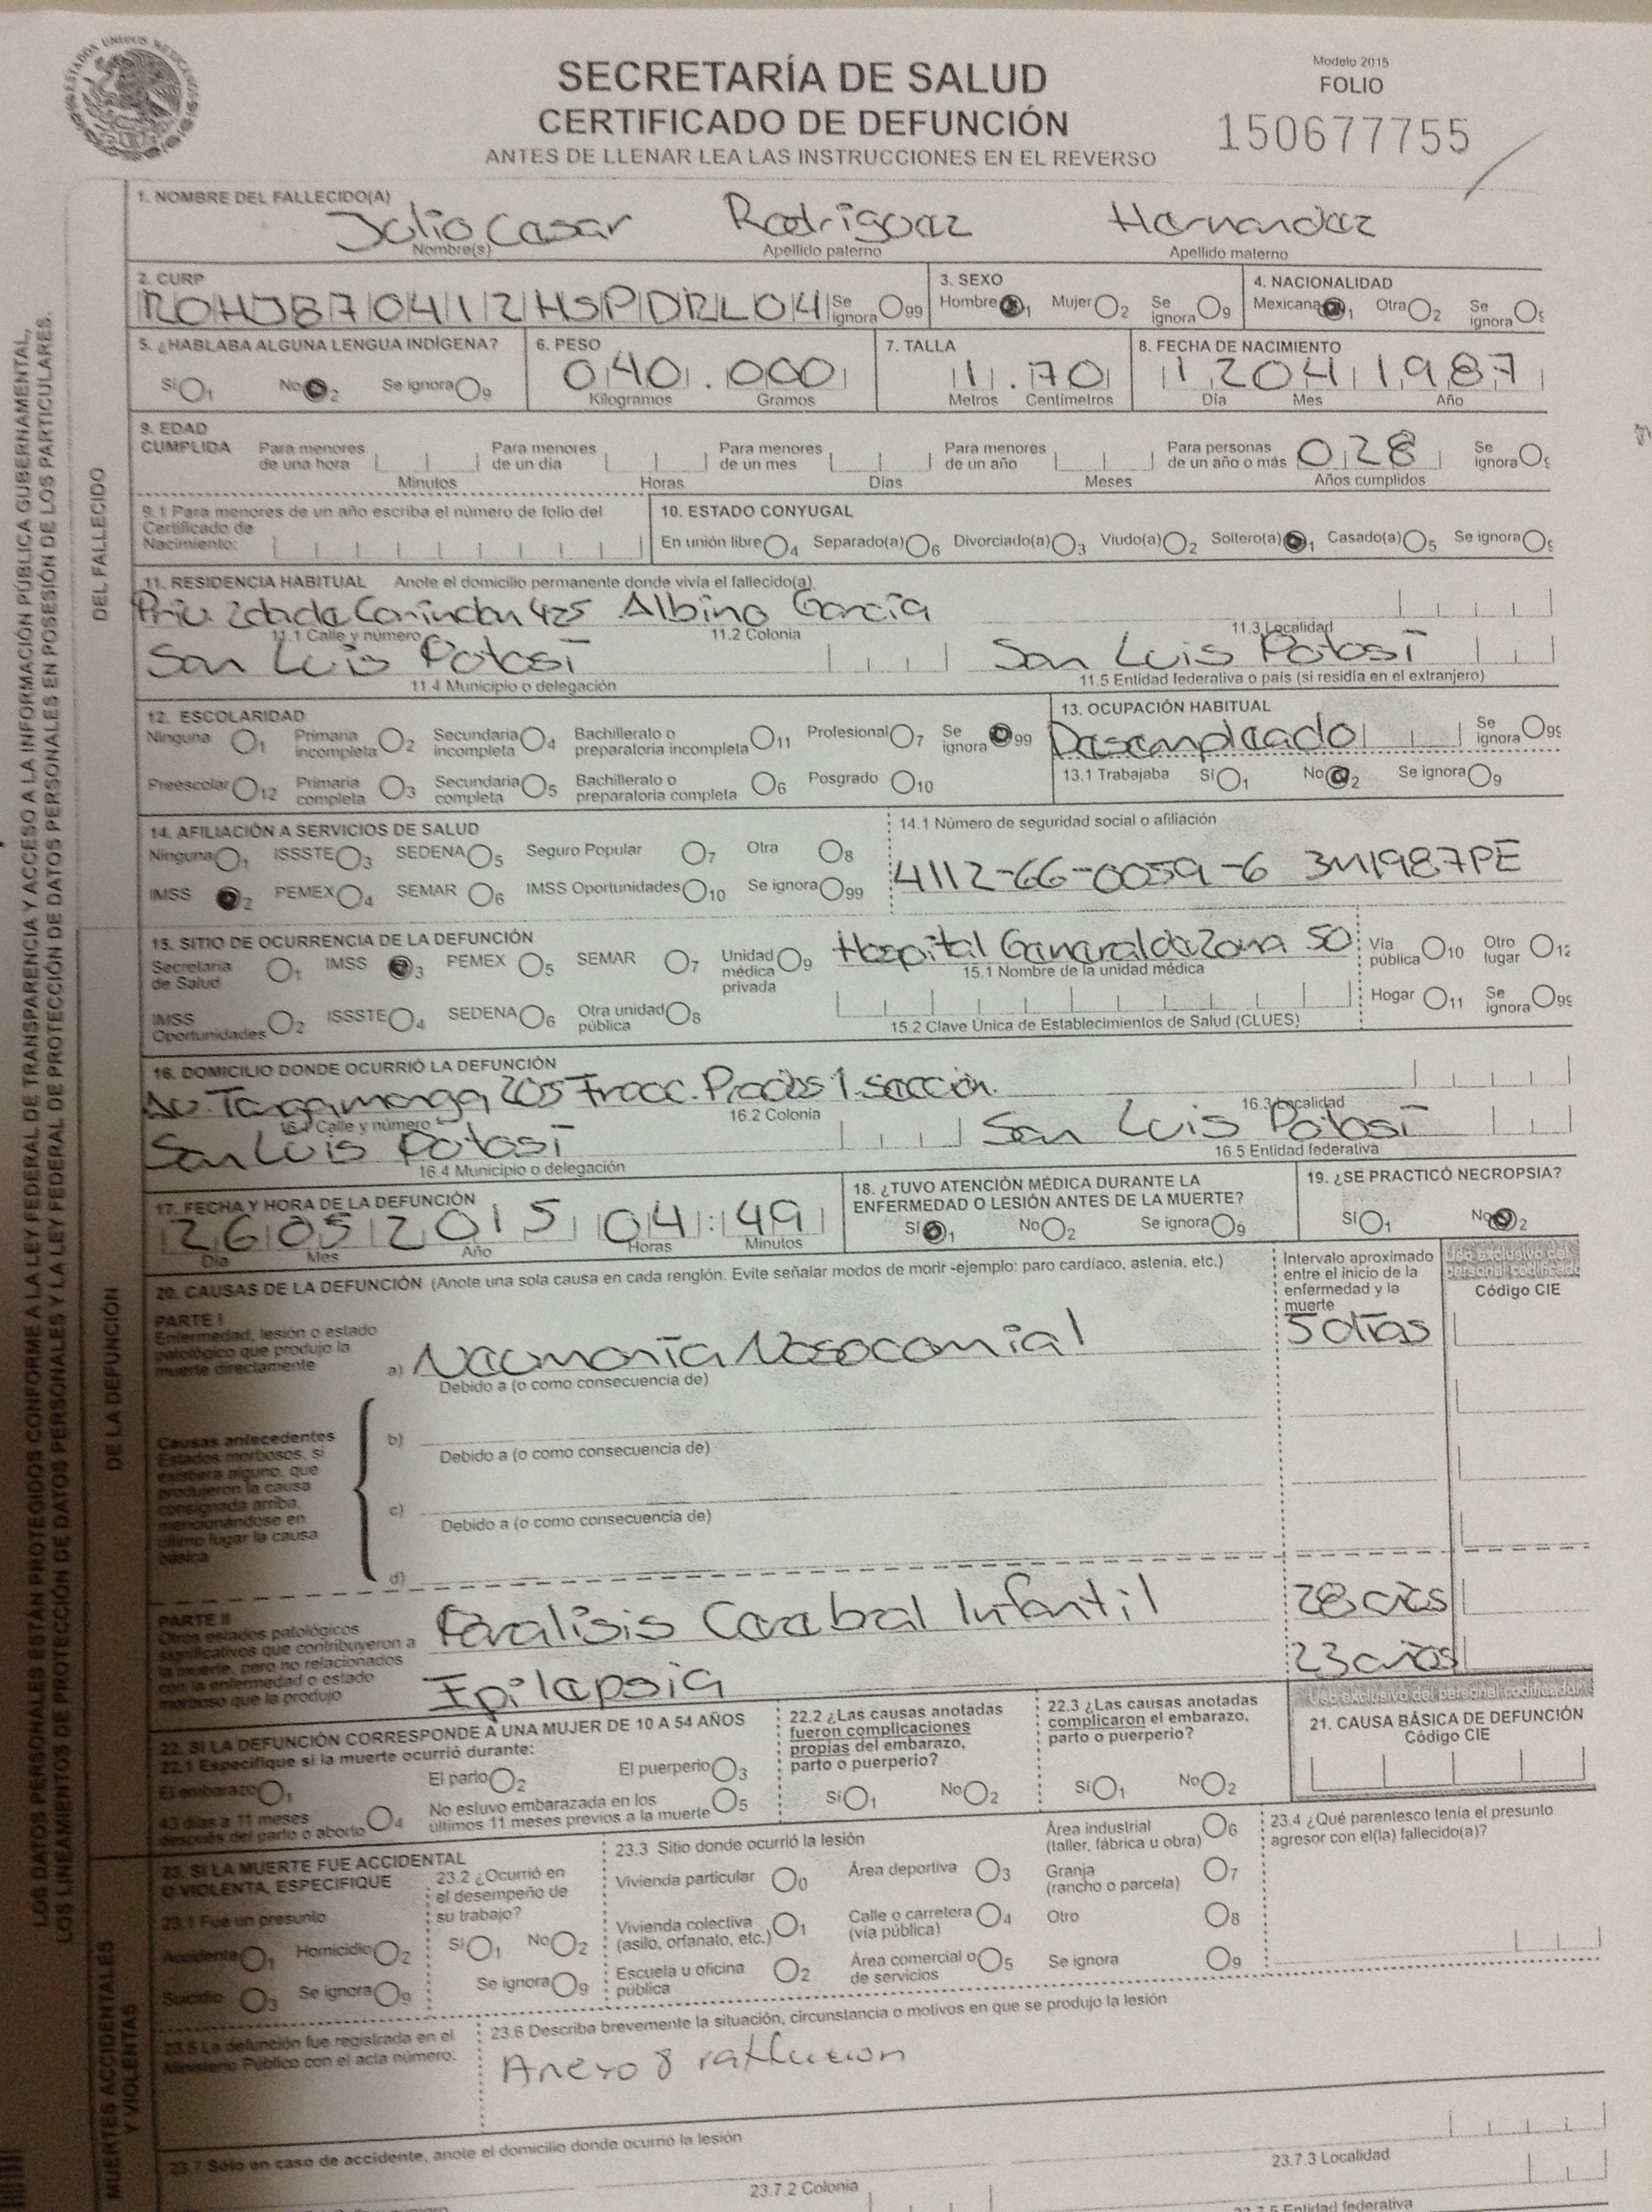 ESTADOS UNIDOS MEXICANOS
SECRETARÍA DE SALUD
CERTIFICADO DE DEFUNCIÓN
ANTES DE LLENAR LEA LAS INSTRUCCIONES EN EL REVERSO
Modelo 2015
FOLIO
150677755
LOS DATOS PERSONALES ESTÁN PROTEGIDOS CONFORME A LA LEY FEDERAL DE TRANSPARENCIA Y ACCESO A LA INFORMACIÓN PÚBLICA GUBERNAMENTAL,
LOS LINEAMIENTOS DE PROTECCIÓN DE DATOS PERSONALES Y LA LEY FEDERAL DE PROTECCIÓN DE DATOS PERSONALES EN POSESIÓN DE LOS PARTICULARES.
DEL FALLECIDO
1. NOMBRE DEL FALLECIDO(A)
Julio Cesar Rodriguez Hernandez
Nombre(s) Apellido paterno Apellido materno
2. CURP 3. SEXO 4. NACIONALIDAD
ROHJ870412HSPDRL04 Se ignora 99 Hombre 1 Mujer 2 Se ignora 9 Mexicana 1 Otra 2 Se ignora
5. ¿HABLABA ALGUNA LENGUA INDÍGENA? 6. PESO 7. TALLA 8. FECHA DE NACIMIENTO
Sí 1 No 2 Se ignora 9 040.000 1.70 12 04 1987
Kilogramos Gramos Metros Centímetros Día Mes Año
9. EDAD CUMPLIDA Para menores de una hora Para menores de un día Para menores de un mes Para menores de un año Para personas de un año o más 028 Se ignora
Minutos Horas Días Meses Años cumplidos
9.1 Para menores de un año escriba el número de folio del Certificado de Nacimiento:
10. ESTADO CONYUGAL
En unión libre 4 Separado(a) 6 Divorciado(a) 3 Viudo(a) 2 Soltero(a) 1 Casado(a) 5 Se ignora
11. RESIDENCIA HABITUAL Anote el domicilio permanente donde vivía el fallecido(a).
Priv. 425 Albino García
11.1 Calle y número 11.2 Colonia 11.3 Localidad
San Luis Potosí San Luis Potosí
11.4 Municipio o delegación 11.5 Entidad federativa o país (si residía en el extranjero)
12. ESCOLARIDAD 13. OCUPACIÓN HABITUAL
Ninguna 1 Primaria incompleta 2 Secundaria incompleta 4 Bachillerato o preparatoria incompleta 11 Profesional 7 Se ignora 99 Desempleado Se ignora 99
Preescolar 12 Primaria completa 3 Secundaria completa 5 Bachillerato o preparatoria completa 6 Posgrado 10 13.1 Trabajaba Sí 1 No 2 Se ignora 9
14. AFILIACIÓN A SERVICIOS DE SALUD 14.1 Número de seguridad social o afiliación
Ninguna 1 ISSSTE 3 SEDENA 5 Seguro Popular 7 Otra 8
4112-66-0059-6 3M1987PE
IMSS 2 PEMEX 4 SEMAR 6 IMSS Oportunidades 10 Se ignora 99
DE LA DEFUNCIÓN
15. SITIO DE OCURRENCIA DE LA DEFUNCIÓN
Secretaría de Salud 1 IMSS 3 PEMEX 5 SEMAR 7 Unidad médica privada 9 Hospital General de Zona 50 Vía pública 10 Otro lugar 12
15.1 Nombre de la unidad médica
IMSS Oportunidades 2 ISSSTE 4 SEDENA 6 Otra unidad pública 8 Hogar 11 Se ignora 99
15.2 Clave Única de Establecimientos de Salud (CLUES)
16. DOMICILIO DONDE OCURRIÓ LA DEFUNCIÓN
Av. Tangamanga 205 Fracc. Prados 1. sección.
16.1 Calle y número 16.2 Colonia 16.3 Localidad
San Luis Potosí San Luis Potosí
16.4 Municipio o delegación 16.5 Entidad federativa
17. FECHA Y HORA DE LA DEFUNCIÓN 18. ¿TUVO ATENCIÓN MÉDICA DURANTE LA ENFERMEDAD O LESIÓN ANTES DE LA MUERTE? 19. ¿SE PRACTICÓ NECROPSIA?
26 05 2015 04:49 Sí 1 No 2 Se ignora 9 Sí 1 No 2
Día Mes Año Horas Minutos
20. CAUSAS DE LA DEFUNCIÓN (Anote una sola causa en cada renglón. Evite señalar modos de morir -ejemplo: paro cardíaco, astenia, etc.)
Intervalo aproximado entre el inicio de la enfermedad y la muerte
Uso exclusivo del personal codificador
Código CIE
PARTE I
Enfermedad, lesión o estado patológico que produjo la muerte directamente
a) Neumonía Nosocomial 5 días
Debido a (o como consecuencia de)
Causas antecedentes
Estados morbosos, si existiera alguno, que produjeron la causa consignada arriba, mencionándose en último lugar la causa básica
b)
Debido a (o como consecuencia de)
c)
Debido a (o como consecuencia de)
d)
PARTE II
Otros estados patológicos significativos que contribuyeron a la muerte, pero no relacionados con la enfermedad o estado morboso que la produjo
Paralisis Cerebral Infantil 28 años
Epilepsia 23 años
Uso exclusivo del personal codificador
21. CAUSA BÁSICA DE DEFUNCIÓN
Código CIE
22. SI LA DEFUNCIÓN CORRESPONDE A UNA MUJER DE 10 A 54 AÑOS
22.1 Especifique si la muerte ocurrió durante:
El embarazo 1 El parto 2 El puerperio 3
43 días a 11 meses después del parto o aborto 4 No estuvo embarazada en los últimos 11 meses previos a la muerte 5
22.2 ¿Las causas anotadas fueron complicaciones propias del embarazo, parto o puerperio?
Sí 1 No 2
22.3 ¿Las causas anotadas complicaron el embarazo, parto o puerperio?
Sí 1 No 2
MUERTES ACCIDENTALES Y VIOLENTAS
23. SI LA MUERTE FUE ACCIDENTAL O VIOLENTA, ESPECIFIQUE
23.1 Fue un presunto
Accidente 1 Homicidio 2
Suicidio 3 Se ignora 9
23.2 ¿Ocurrió en el desempeño de su trabajo?
Sí 1 No 2
Se ignora 9
23.3 Sitio donde ocurrió la lesión
Vivienda particular 0 Área deportiva 3 Área industrial (taller, fábrica u obra) 6
Vivienda colectiva (asilo, orfanato, etc.) 1 Calle o carretera (vía pública) 4 Granja (rancho o parcela) 7
Escuela u oficina pública 2 Área comercial o de servicios 5 Otro 8
Se ignora 9
23.4 ¿Qué parentesco tenía el presunto agresor con el(la) fallecido(a)?
23.5 La defunción fue registrada en el Ministerio Público con el acta número:
23.6 Describa brevemente la situación, circunstancia o motivos en que se produjo la lesión
Anexo 8
23.7 Sólo en caso de accidente, anote el domicilio donde ocurrió la lesión
23.7.2 Colonia 23.7.3 Localidad
23.7.5 Entidad federativa